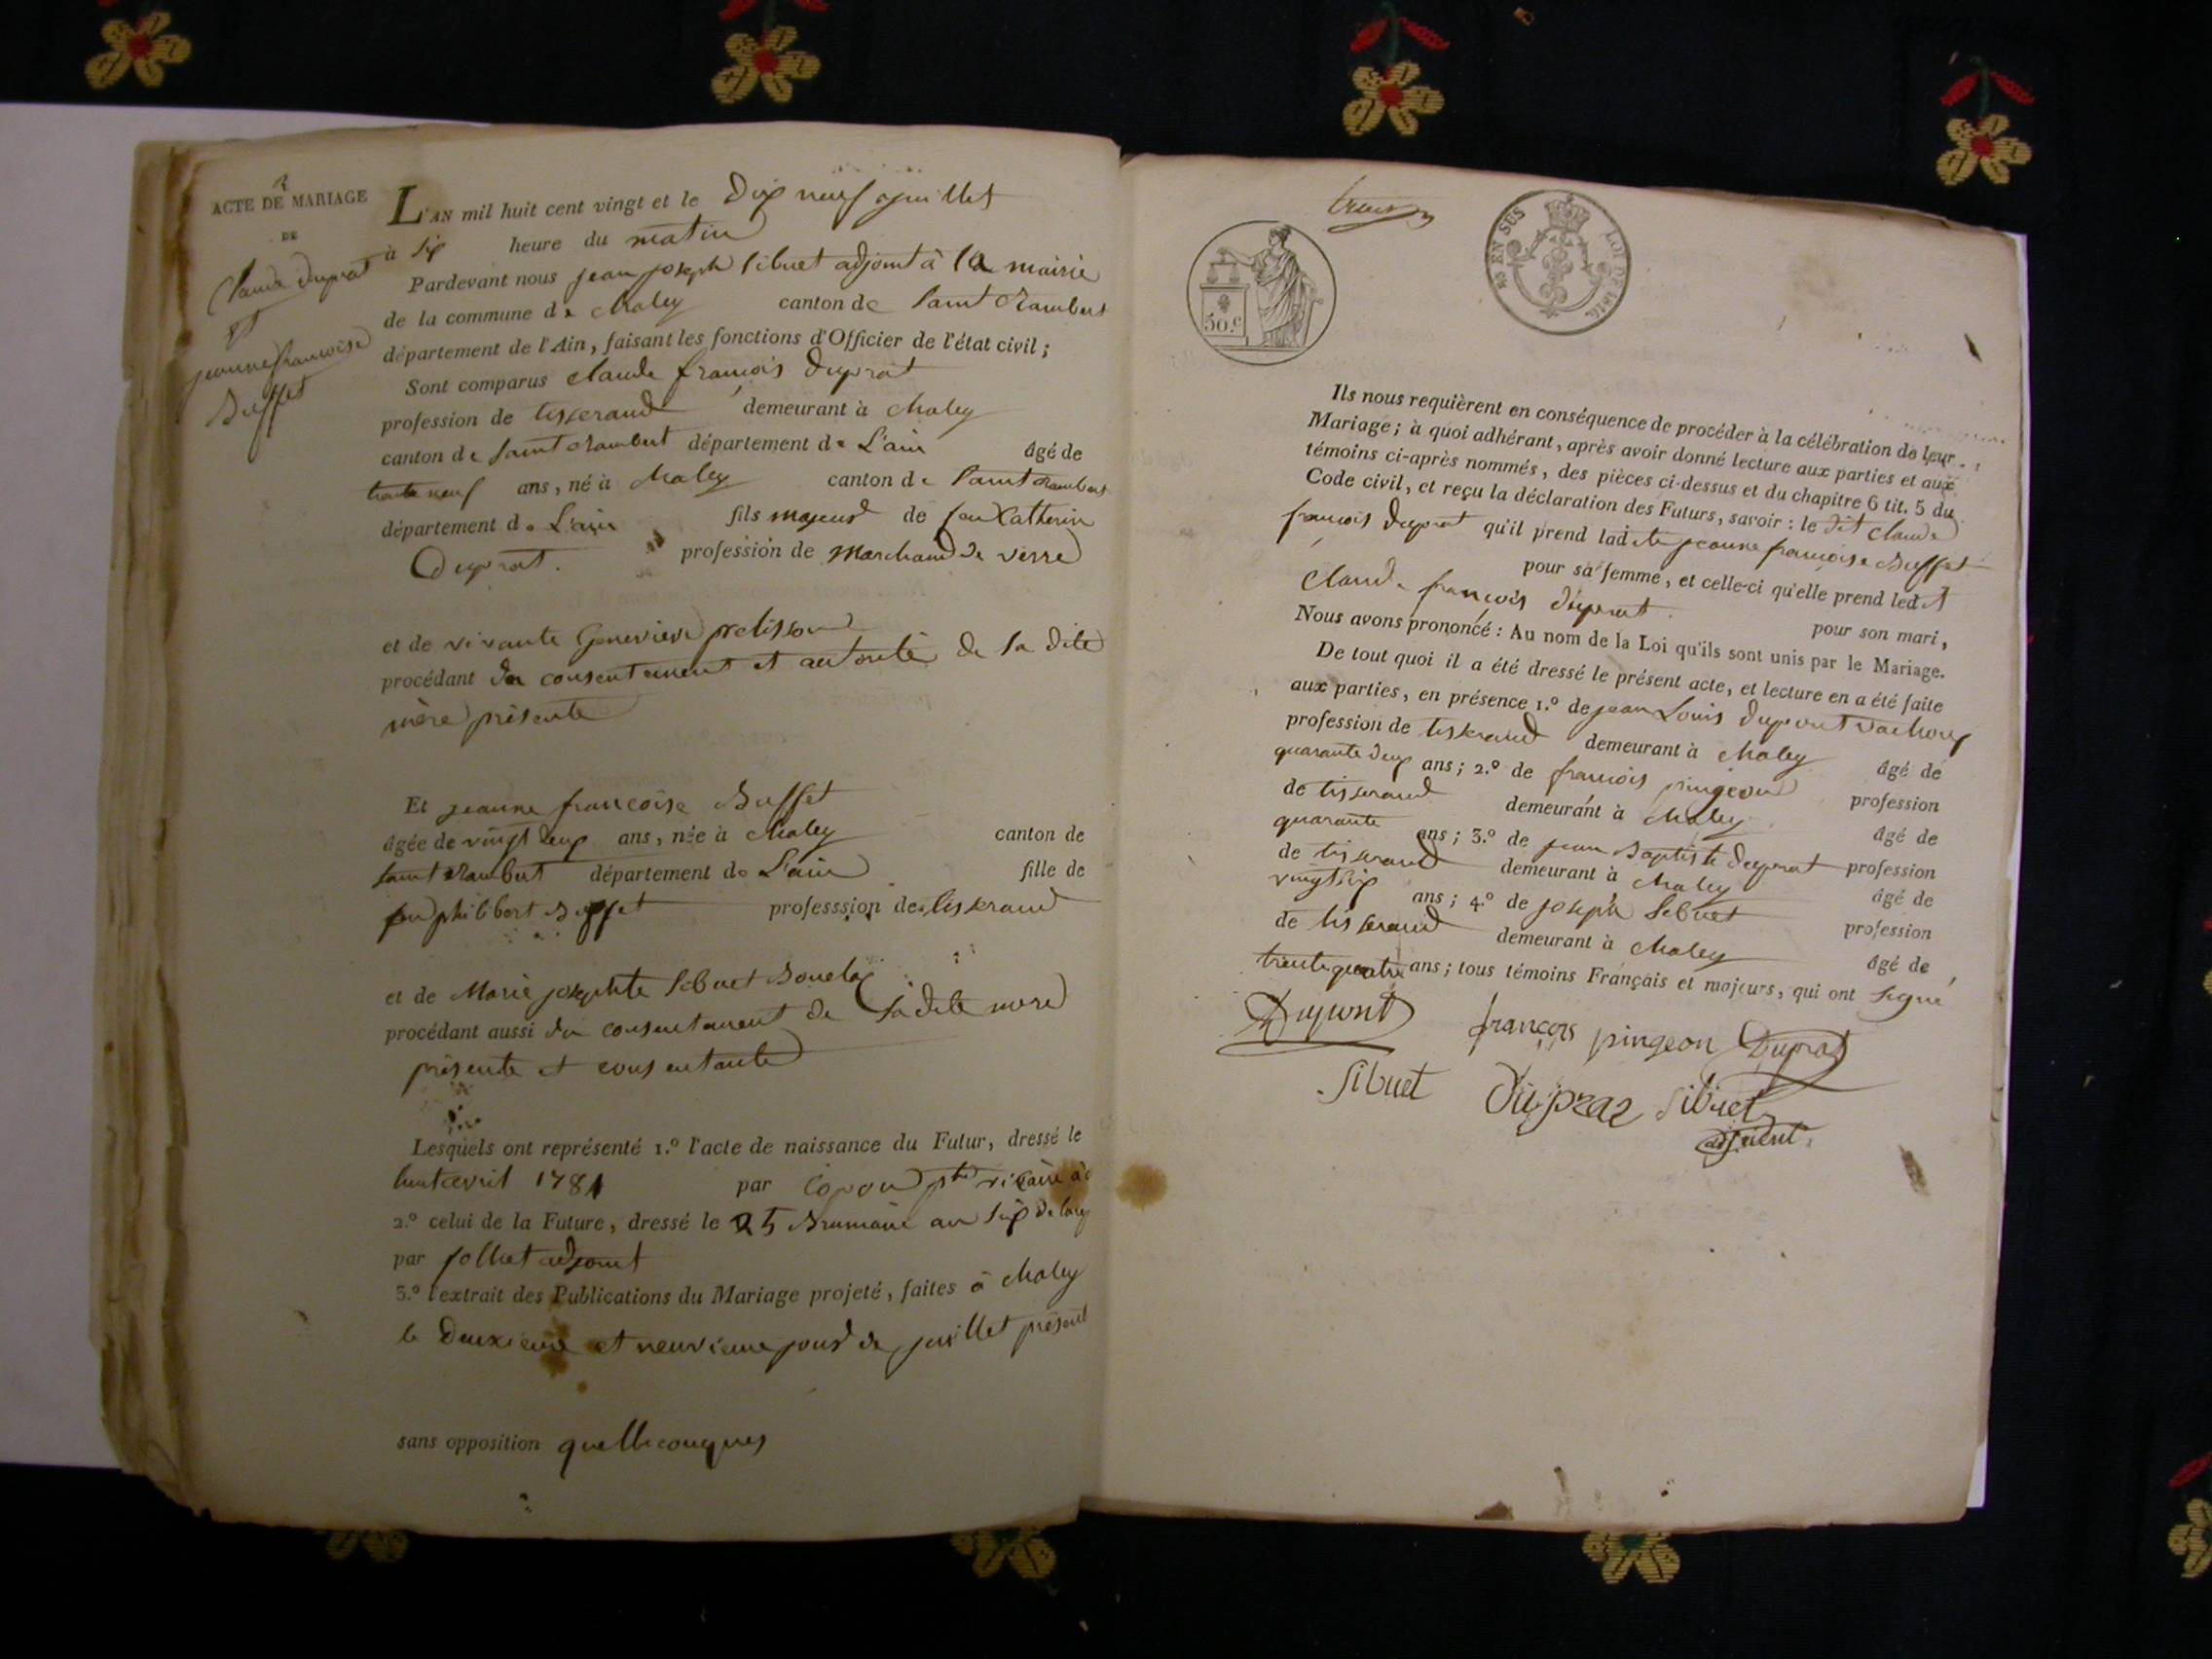 ACTE DE MARIAGE
DE
Claude duprat
et
jeanne francoise
Buffet
L'AN mil huit cent vingt et le Dix neuf juillet
à six heure du matin
Pardevant nous jean joseph sibuet adjoint à la mairie
de la commune de chaley canton de saint Rambert
département de l'Ain, faisant les fonctions d'Officier de l'état civil ;
Sont comparus claude françois duprat
profession de tisserand demeurant à chaley
canton de saint Rambert département de L'ain âgé de
trente neuf ans, né à chaley canton de saint Rambert
département de L'ain fils majeur de feu Catherin
Duprat. profession de marchand de verre
et de vivante Genevieve prelisson
procédant du consentement et autorité de la dite
mère présente
Et jeanne françoise Buffet
âgée de vingt deux ans, née à chaley canton de
saint Rambert département de L'ain fille de
feu philibert Buffet professsion de tisserand
et de Marie josephte sibuet
procédant aussi du consentement de sa dite mere
présente et consentante
Lesquels ont représenté 1.º l'acte de naissance du Futur, dressé le
huit avril 1781 par vicaire
2.º celui de la Future, dressé le 25 Brumaire an six
par adjoint
3.º l'extrait des Publications du Mariage projeté, faites à chaley
le Deuxieme et neuvieme jour de juillet présent
sans opposition quelleconques
50.c
EN SUS LOI DE 1816.
Ils nous requièrent en conséquence de procéder à la célébration de leur
Mariage ; à quoi adhérant, après avoir donné lecture aux parties et aux
témoins ci-après nommés, des pièces ci-dessus et du chapitre 6 tit. 5 du
Code civil, et reçu la déclaration des Futurs, savoir : le dit claude
françois duprat qu'il prend ladite jeanne françoise Buffet
pour sa femme, et celle-ci qu'elle prend ledit
claude françois duprat. pour son mari,
Nous avons prononcé : Au nom de la Loi qu'ils sont unis par le Mariage.
De tout quoi il a été dressé le présent acte, et lecture en a été faite
aux parties, en présence 1.º de jean Louis dupont
profession de tisserand demeurant à chaley âgé de
quarante deux ans ; 2.º de françois pingeon profession
de tisserand demeurant à chaley âgé de
quarante ans ; 3.º de jean Baptiste duprat profession
de tisserand demeurant à chaley âgé de
vingt six ans ; 4.º de joseph sibuet profession
de tisserand demeurant à chaley âgé de
trente quatre ans ; tous témoins Français et majeurs, qui ont signé
Dupont françois pingeon Duprat
sibuet Dupraz sibuet
adjoint.